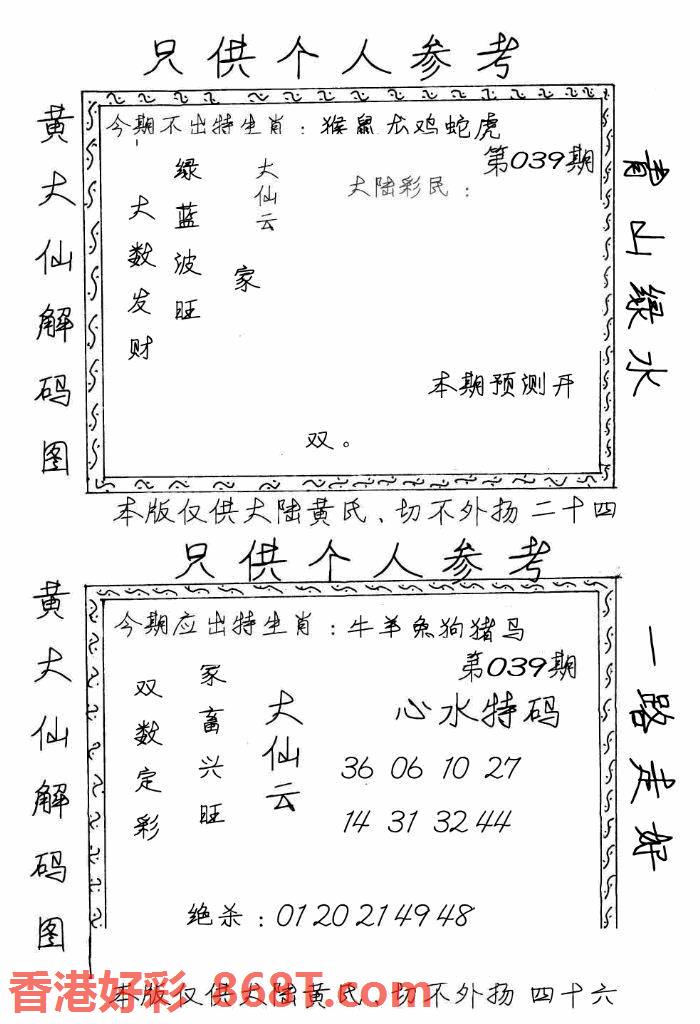 只供个人参考
黄大仙解码图
今期不出特生肖：猴鼠龙鸡蛇虎
第039期
大陆彩民：
大仙云
绿蓝波旺
大数发财
家
本期预测开
双。
青山绿水
本版仅供大陆黄氏、切不外扬 二十四
只供个人参考
黄大仙解码图
今期应出特生肖：牛羊兔狗猪马
第039期
双数定彩
家畜兴旺
大仙云
心水特码
36 06 10 27
14 31 32 44
绝杀：01 20 21 49 48
一路走好
本版仅供大陆黄氏、切不外扬 四十六
香港好彩 868T.com